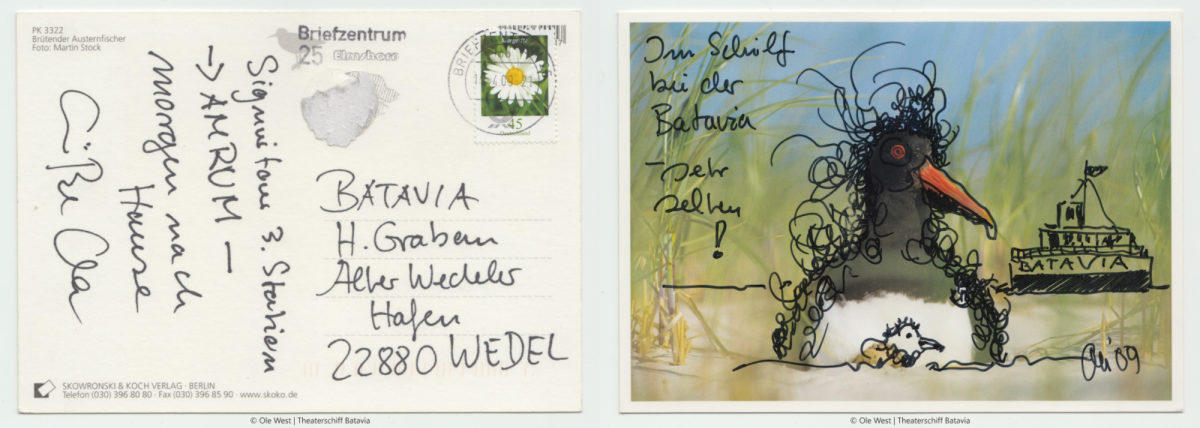 PK 3322
Brütender Austernfischer
Foto: Martin Stock
Briefzentrum
25 Elmshorn
Margerite
45
Deutschland
3. Station
→ AMRUM –
morgen nach
Hause
BATAVIA
H. Grabau
Alter Wedeler
Hafen
22880 WEDEL
SKOWRONSKI & KOCH VERLAG · BERLIN
Telefon (030) 396 80 80 · Fax (030) 396 85 90 · www.skoko.de
© Ole West | Theaterschiff Batavia
Im Schilf
bei der
Batavia
– sehr
selten
!
BATAVIA
Ole 09
© Ole West | Theaterschiff Batavia